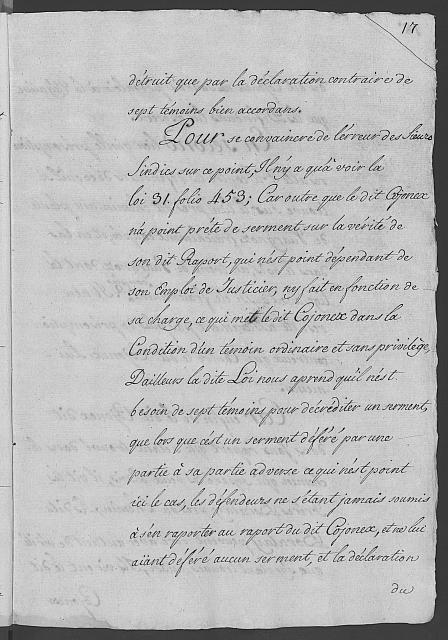 17
détruit que par la déclaration contraire de
sept témoins bien accordans.
Pour se convaincre de l'érreur des Sieurs
Sindics sur ce point, Il n'y a qu'à voir la
loi 31. folio 453; Car outre que le dit Cojonex
n'a point prété de serment sur la vérité de
son dit Raport, qui n'ést point dépendant de
son Emploi de Justicier, ny fait en fonction de
sa charge, ce qui met le dit Cojonex dans la
Condition d'un témoin ordinaire et sans privilége,
D'ailleurs la dite Loi nous aprend qu'il n'ést
besoin de sept témoins pour décréditer un serment,
que lors que c'ést un serment déféré par une
partie à sa partie adverse ce qui n'ést point
ici le cas, les défendeurs ne s'étant jamais soumis
à s'én raporter au raport du dit Cojonex, et ne lui
aïant déféré aucun serment, et la déclaration
du